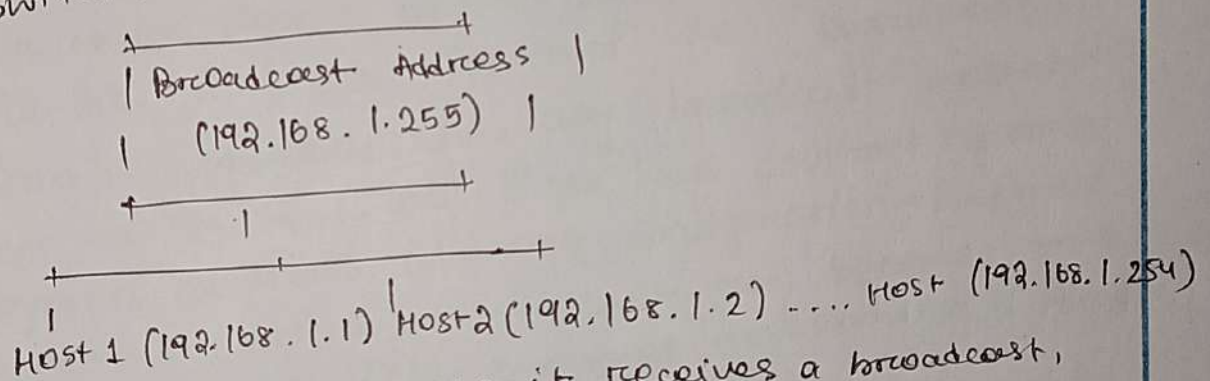 | Broadcast Address |
| (192.168.1.255) |
Host 1 (192.168.1.1) Host 2 (192.168.1.2) .... Host (192.168.1.254)
it receives a broadcast,